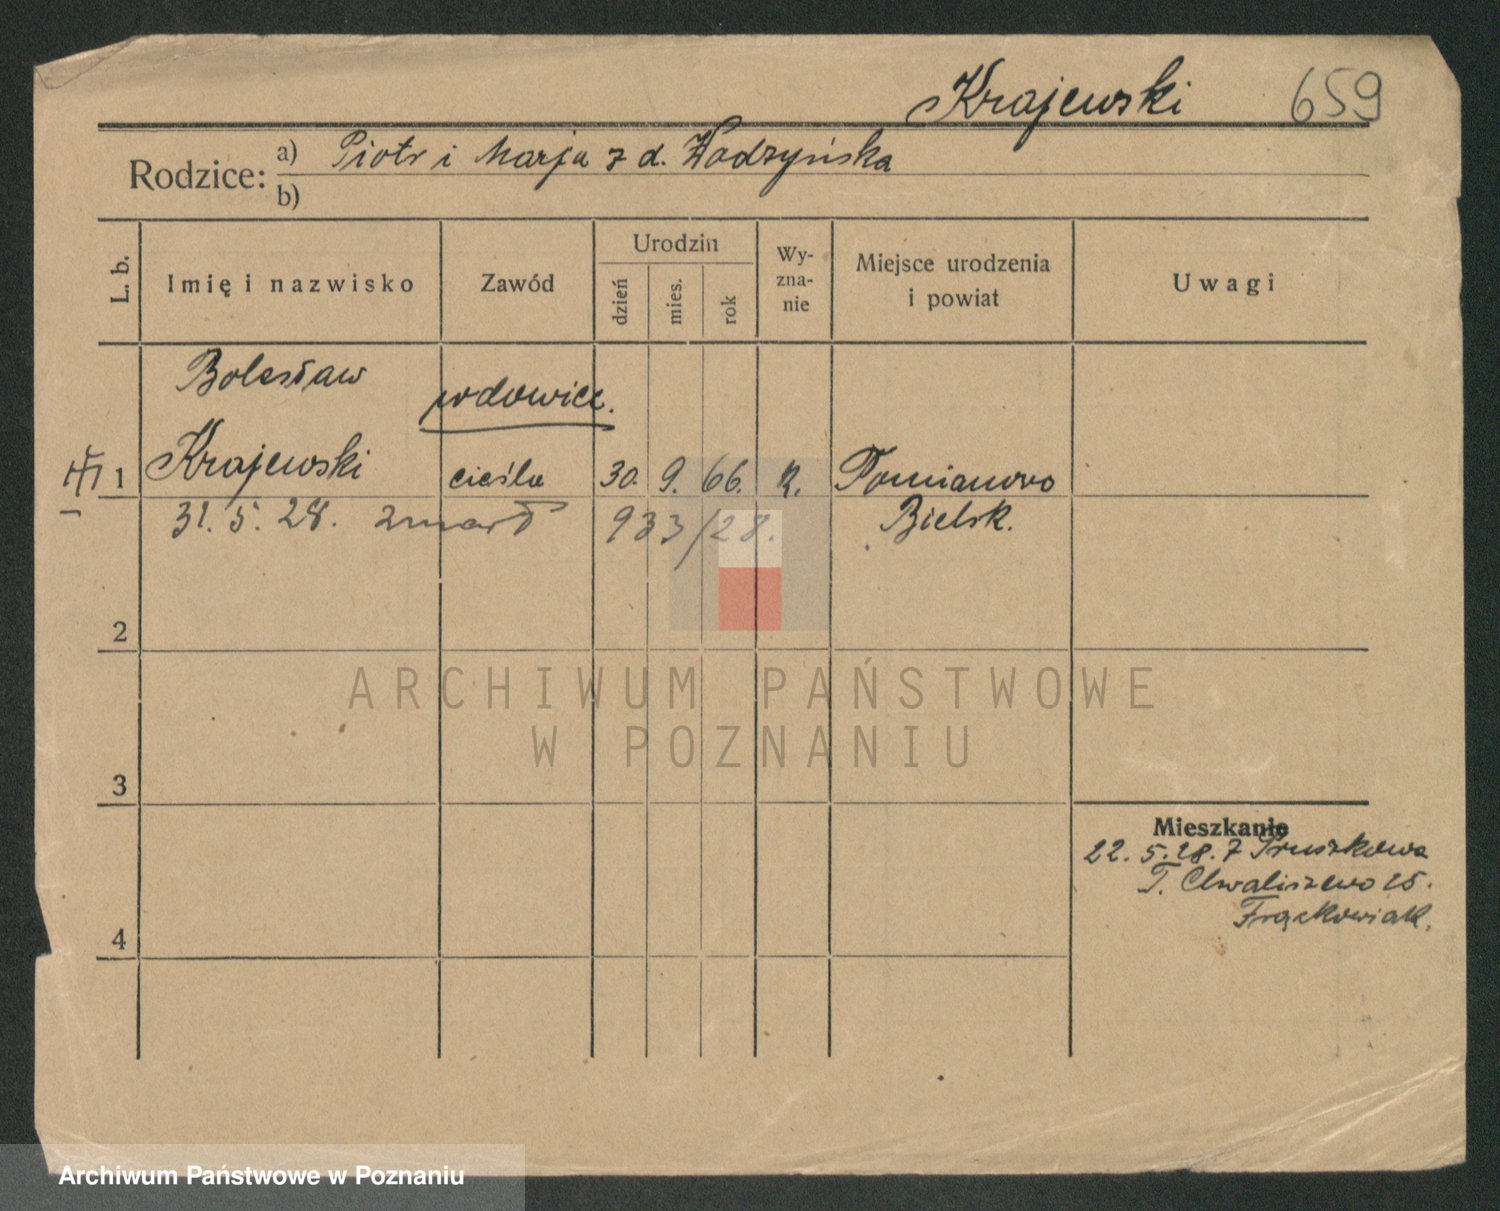 Krajewski 659
Rodzice: a) Piotr i Marja z d. Wodzyńska
b)
L. b. Imię i nazwisko Zawód Urodzin dzień mies. rok Wy-zna-nie Miejsce urodzenia i powiat Uwagi
Bolesław wdowiec.
1 Krajewski cieśla 30. 9. 66. R. Pomianowo
31. 5. 28. zmarł 933/28. Bielsk.
2
ARCHIWUM PAŃSTWOWE
W POZNANIU
3
Mieszkanie
22. 5. 28. z Pruszkowa
T. Chwaliszewo 25.
Frąckowiak.
4
Archiwum Państwowe w Poznaniu